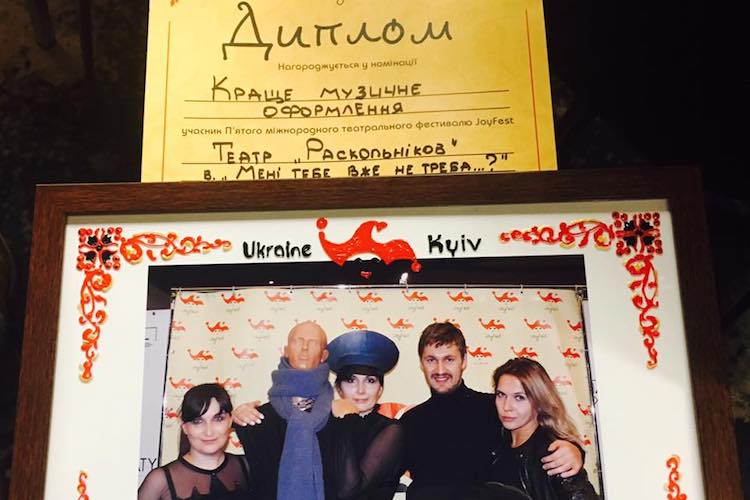 Диплом
Нагороджується у номінації
Краще музичне
оформлення
учасник П'ятого міжнародного театрального фестивалю JoyFest
Театр „Раскольніков"
в. „Мені тебе вже не треба...?"
Ukraine Kyiv
JoyFest